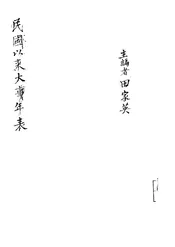 民國以來大事年表
主編者田家英